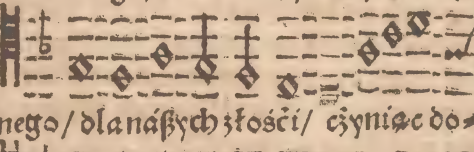 nego / dla náßych złośći / cżyniąc do⸗